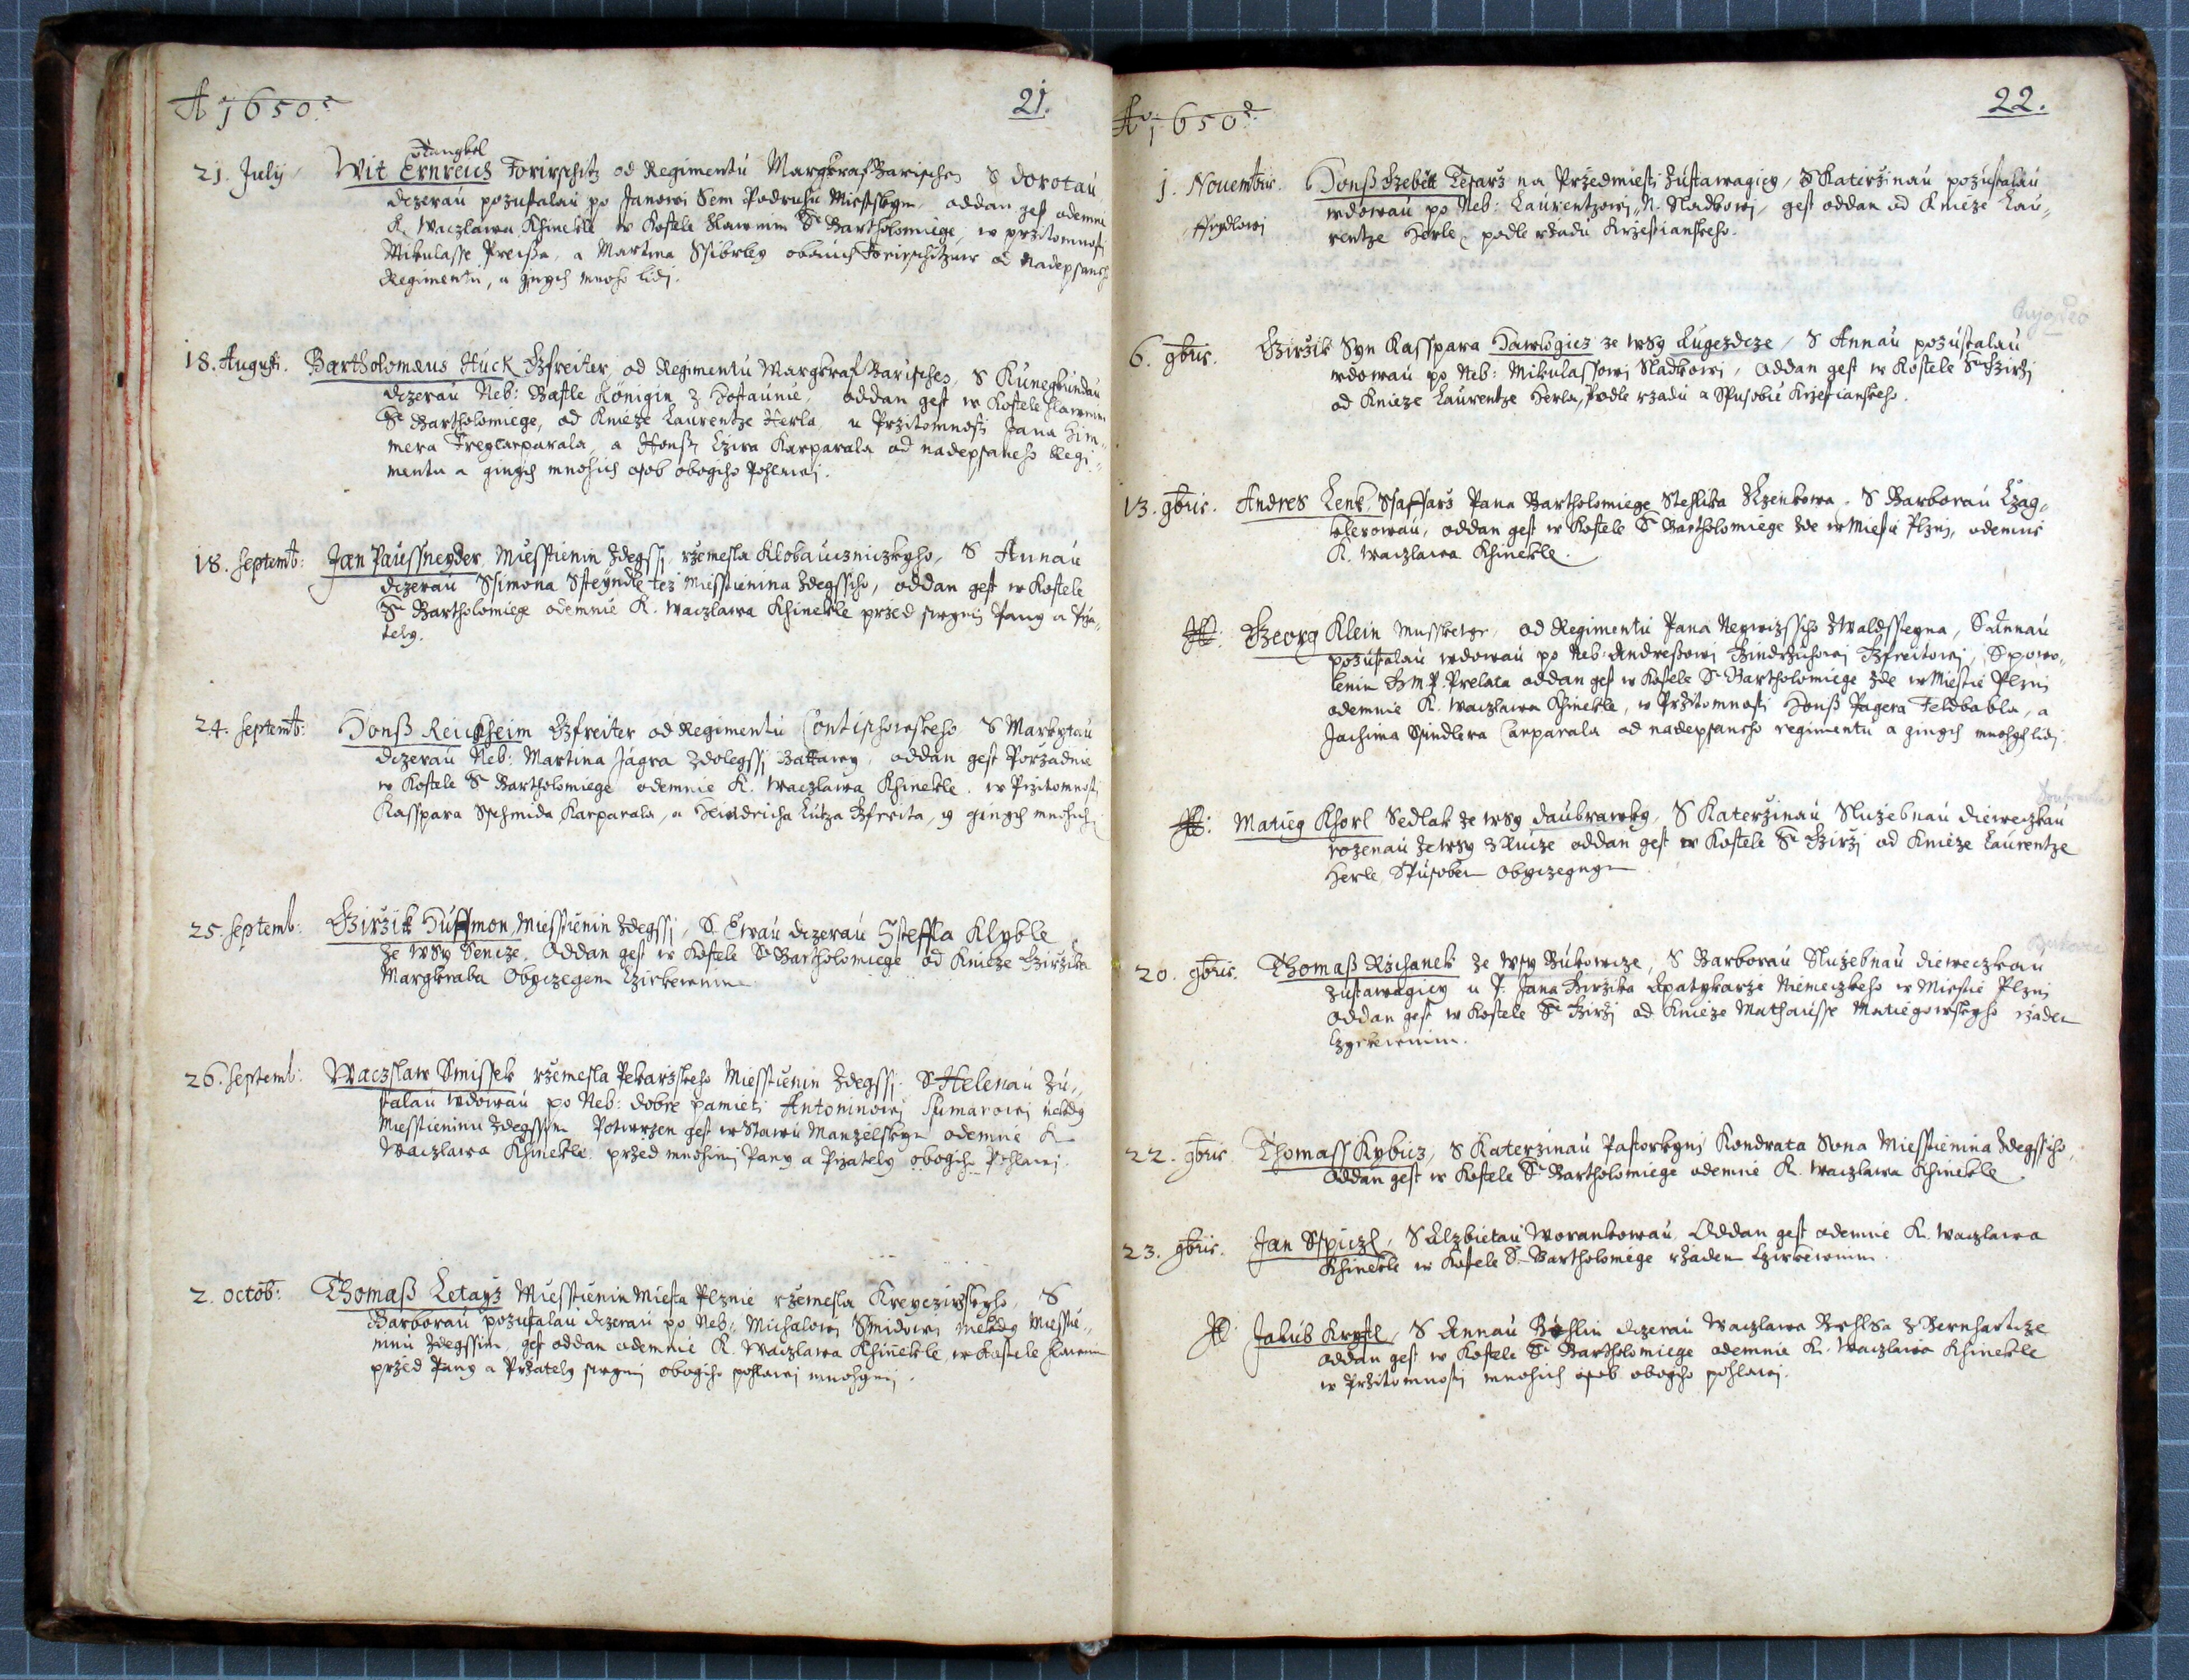 A 1650.
21.
21. July
Wit Ernreich Forirschitz od Regimentu Margkraf Barischen S Dorotau
dczerau pozustalau po Janowi Sem Podruhu Miestskym, oddan gest odemne
K. Waczlawa Khinekle w Kostele Hlawnim Se Bartholomiege, w przitomnosti
Mikulasse Preissa, a Martina Ssibrley obauch Forirschitzuw od nadepsaneho
Regimentu, a ginych mnoho lidi.
18. Augusti. Bartholomæus Huck Gfreiter od Regimentu Margkraf Barisches, S Kunegkundau
dczerau Neb: Bastle Königin z Hostaunie, oddan gest w Kostele hlawnim
Se Bartholomiege, od Knieze Laurentze Herla u Przitomnosti Jana Him-
mera Freylarparala, a Honss Czira Karparala od nadepsaneho Regi-
mentu a ginych mnohich osob obogiho Pohlawi.
18. Septemb: Jan Paussneyder Miesstienin Zdegssi rzemesla Klobauczniczkyho, S Annau
dczerau Ssimona Ssteyndle tez Miesstienina Zdegssiho, oddan gest w Kostele
Se Bartholomiege odemnie K. Waczlawa Khinekle przed swymi Pany a Prza-
tely.
24. Septemb: Honß Reickheim Gfreiter od Regimentu Contischowskeho S Markytau
dczerau Neb: Martina Jágra Zdolegssi Battawy, oddan gest Porzadnie
w Kostele Se Bartholomiege odemnie K. Waczlawa Khinekle. w Przitomnosti
Kasspara Sschmida Karparala, a Heindricha Lutza Gfreita, y ginych mnohich
25. Septemb: Girzik Huffmon Miesstienin Zdegssi, S Ewau dczerau Ssteffla Klyble
ze wsy Sencze. Oddan gest w Kostele Se Bartholomiege od Knieze Girzika
Margkraba Obyczegem Czirkewnim
26. Septemb: Waczslaw Smissek rzemesla Pekarzskeho Miesstienin Zdegssi. S Helenau Zu-
stalau wdowau po Neb: dobre pamieti Antoninowi Sumarowi nekdy
Miesstieninu Zdegssim Potwrzen gest w Stawu Manzelskym odemnie K
Waczlawa Khinekle. przed mnohimi Pany a Przately obogiho Pohlawi.
2. Octob: Thomaß Letayz Miesstienin Miesta Plznie rzemesla Kreyczirzskyho, S
Barborau pozustalau dczerau po Neb: Michalowi Smidowi niekdy Miesstie-
ninu Zdegssim, gest oddan odemnie K. Waczlawa Khinekle, w Kostele hlawnim
przed Pany a Przately swymi obogiho pohlawi mnohymi.
Ao 1650.
22.
1. Nouembris. Honß Tesarz na Przedmiesti Zustawagicy, S Katerzinau pozustalau
wdowau po Neb: Laurentzowi N. Sladkowi, gest oddan od Knieze Lau-
rentze Herle, podle rzadu Krzestianskeho.
6. 9bris. Girzik Syn Kasspara Hawlogicz ze wsy Lugezdcze, S Annau pozustalau
wdowau po Neb: Mikulassowi Sladkowi, oddan gest w Kostele Se Girzi
od Knieze Laurentze Herla, Podle rzadu a Spusobu Krzestianskeho.
13. 9bris. Andres Lenk Ssaffarz Pana Bartholomiege Stehlika Czenkowa. S Barborau Czag-
klerowau, oddan gest w Kostele S Bartholomiege zde w Miestie Plzni, odemne
K. Waczlawa Khinekle.
Georg Klein Mussketyr, od Regimentu Pana Neywizssiho z Waldssteyna, S Annau
pozustalau wdowau po Neb: Andressowi Gindrzichowi Gfreitowi, S powo-
lenim P. Prelata oddan gest w Kostele S Bartholomiege zde w Miestie Plzni
odemnie K. Waczlawa Khinekle, w Przitomnosti Honß Jagera Feldbabla, a
Jachima Spindlera Carparala od nadepsaneho regimentu a ginych mnohych lidi.
Matieg Khorl Sedlak ze wsy Daubrawky, S Katerzinau Sluzebnau diewczkau
rozenau ze wsy oddan gest w Kostele Se Girzi od Knieze Laurentze
Herle Spusobem Obyczegnym
20. 9bris. Thomaß Rzihanek ze wsy Bukowcze, S Barborau Sluzebnau diewczkau
zustawagicy u P. Jana Girzika Apatykarze Niemeczkeho w Miestie Plzni
oddan gest w Kostele Se Girzi od Knieze Mathausse Matiegowskyho rzadem
Czyrkewnim.
22. 9bris. Thomass Kybicz, S Katerzinau Pastorkyni Kondrata Sona Miesstienina Zdegssiho,
oddan gest w Kostele Se Bartholomiege odemnie K. Waczlawa Khinekle
23. 9bris. Jan Sspiczl, S Alzbietau Worankowau. Oddan gest odemnie K. Waczlawa
Khinekle w Kostele S. Bartholomege rzadem Czirkewnim.
Jakub Krystl, S Annau dczerau Waczlawa z Bernhartcze
oddan gest w Kostele Se Bartholomiege odemnie K. Waczlawa Khinekle
w Przitomnosti mnohich osob obogiho pohlawi.